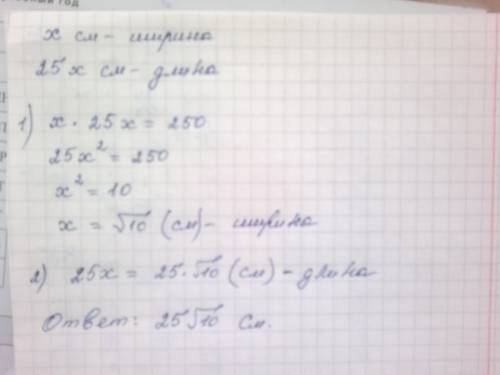 х см - ширина
25х см - длина
1) х · 25х = 250
25х² = 250
х² = 10
х = √10 (см) - ширина
2) 25х = 25·√10 (см) - длина
Ответ: 25√10 см.